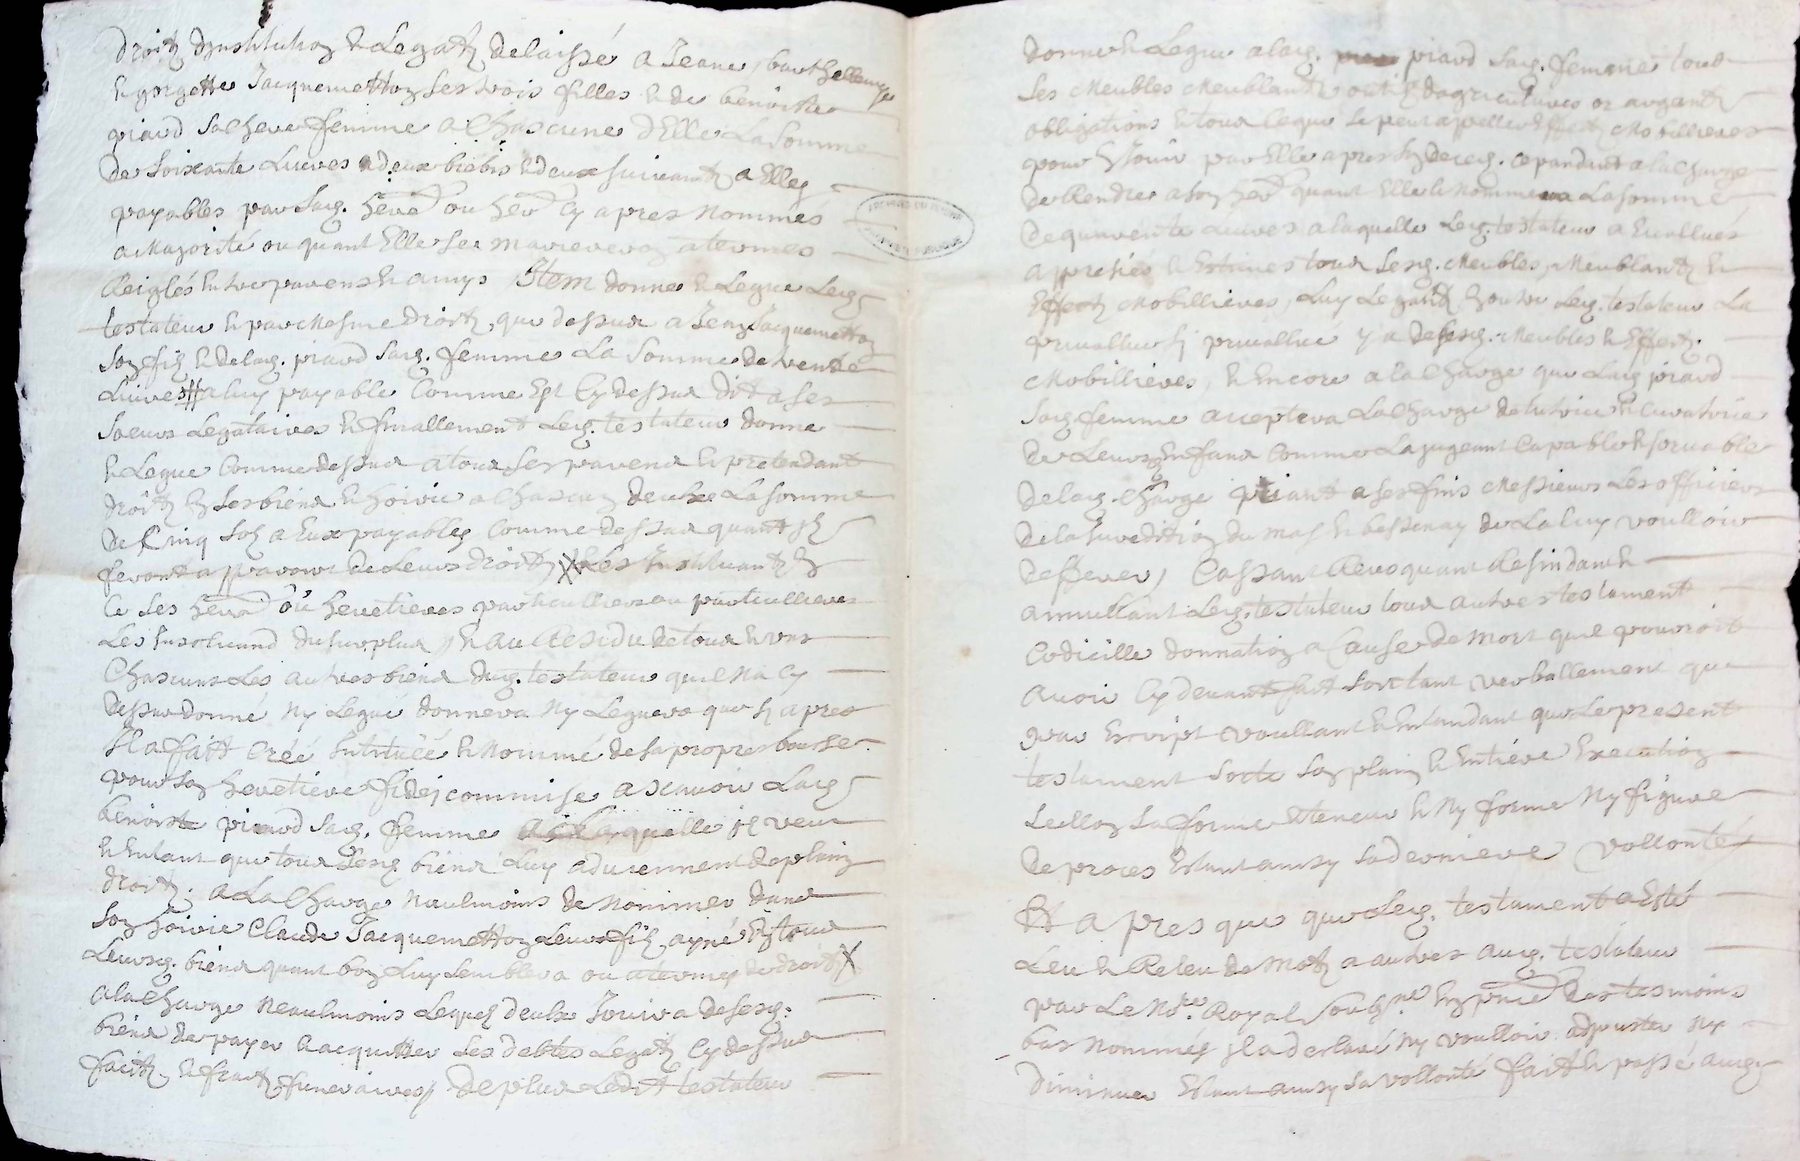 droitz d'institution & Legatz delaissé a Jeane, barthellemye
& gorgette Jacquemetton ses trois filles & de benoiste
piard sa chere femme a Chascune d'Elle La somme
de soixante Livres & deux brebis & deux suivantz a Elles
payables par sad. herre ou herr Cy apres Nommés
a Majorité ou quant Elles se marieront a termes
Reiglés entre parens & amys Item donne & Legue Led.
testateur & par Mesme droitz que dessus a Jean Jacquemetton
son filz & de lad. piard sad. femme La Somme de trente
Livres a luy payable Comme Est Cy dessus dit a ses
Soeurs Legataires & finallement Led. testateur donne
& Legue Comme dessus a tous ses parens & pretendant
droitz En ses biens & hoirie a Chascun deulx La somme
de Cinq solz a Eux payables Comme dessus quant Ilz
feront apparoir de Leurs droitz Les Instituantz En
Ce ses herrs ou heretieres particulliers ou particullieres
Les Exclumd du surplus, & au Residu de tous & uns
Chascuns Les autres biens dud. testateur quil Na Cy
dessus donné Ny Legue donnera Ny Leguera que Cy apres
Il a fait Créé Intitulé & Nommé de sa propre bouche
pour son heretiere fideicommise a scavoir Lad.
benoiste piard sad. femme a laquelle Il veut
& Entant que tous sesd. biens Luy aduiennent de plain
droitz, a La Charge Neaulmoins de Nommer dans
son hoirie Claude Jacquemetton Leur filz ayné En tous
Leursd. biens quant bon Luy semblera ou a termes de droitz
a la Charge Neaulmoins Lequel deulx Jouira de sesd.
biens de payer & acquitter Les debtes Legatz Cy dessus
faitz & fraitz funeraires, de plus Ledit testateur
donne & Legue a lad. piard sad. femme tous
ses Meubles Meublantz outilz d'agricultures or argentz
obligations & tout Ce que se peut apeller Effectz Mobillieres
pour En Jouir par Elle apres son deced. Cependant a la Charge
de Rendre a son herr quant Elle le Nommera La somme
de quarente Livres a laquelle Led. testateur a Evallués
appretiés & Estimés tous sesd. Meubles, Meublantz &
Effectz Mobillieres, Luy Legantz En outre Led. testateur La
prevallue sy prevallue y a de sesd. Meubles & Effectz
Mobillieres, & Encore a la Charge que Lad. piard
sad. femme acceptera La Charge de tutrice & Curatrice
de Leursd. Enfans Comme La jugeant Capable & sorvable
de lad. Charge priant a ses fins Messieurs Les officiers
de la Juredition du Mas & bessenay de La luy voulloir
defferer, Cassant Revoquant Resindant &
annullant Led. testateur tous autres testament
Codicille donnation a Cause de Mort quil pourroit
avoir Cy devant fait soit tant verballement que
par Escript voullant & Entandant que Le present
testament sorte son plain & Entiere Execution
sellon sa forme & teneur & Ny forme Ny figure
de proces Estant ainsy sa derniere vollonté
Et apres que que Led. testament a Esté
Leu & Releu de Motz a autres aud. testateur
par Le Nore. Royal soubzne. En pnce des tesmoins
bas Nommés Il a declaré Ny voulloir adjouster Ny
diminuer Estant ainsy sa vollonté fait & passé aud.